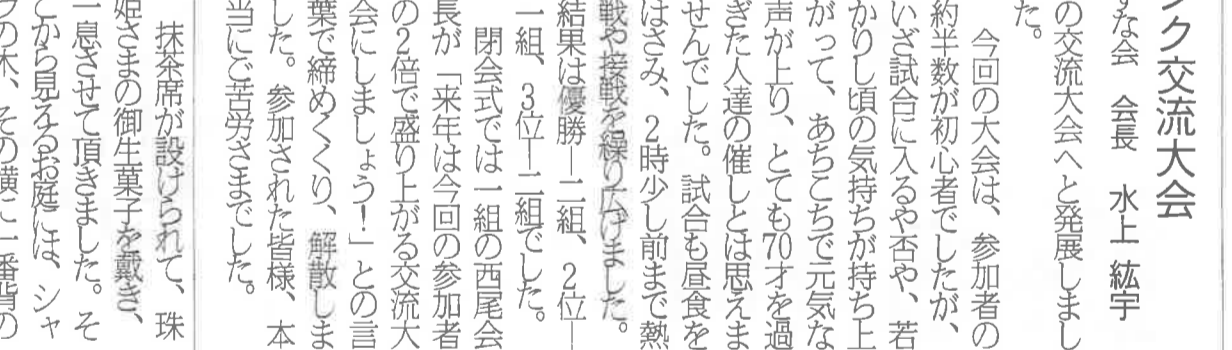 ク交流大会
な会 会長 水上 紘宇
の交流大会へと発展しまし
た。
今回の大会は、参加者の
約半数が初心者でしたが、
いざ試合に入るや否や、若
かりし頃の気持ちが持ち上
がって、あちこちで元気な
声が上り、とても70才を過
ぎた人達の催しとは思えま
せんでした。試合も昼食を
はさみ、2時少し前まで熱
戦や接戦を繰り広げました。
結果は優勝―二組、2位―
一組、3位―二組でした。
閉会式では一組の西尾会
長が「来年は今回の参加者
の2倍で盛り上がる交流大
会にしましょう！」との言
葉で締めくくり、解散しま
した。参加された皆様、本
当にご苦労さまでした。
抹茶席が設けられて、珠
姫さまの御生菓子を戴き、
一息させて頂きました。そ
こから見えるお庭には、シャ
の木、その横に一番背の